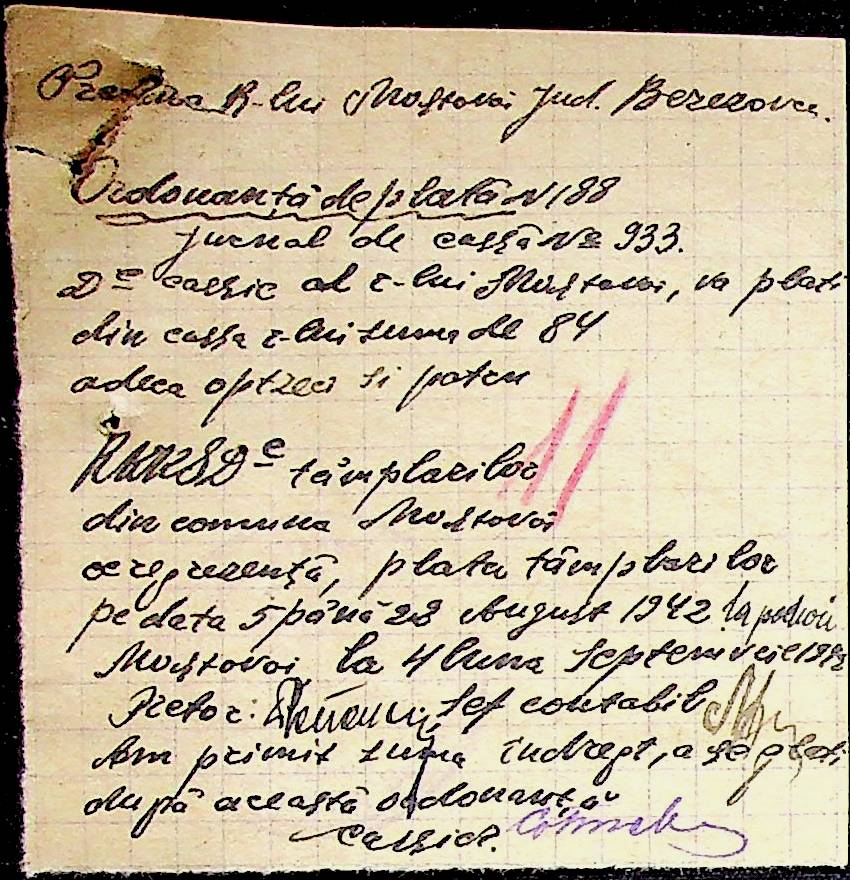 Pretura R-lui Mostovoi Jud. Berezovca.
Ordonanță de plată N 188
Jurnal de cassă № 933.
Dl cassie al r-lui Mostovoi, va plati
din cassa r-lui suma de 84
adeca optzeci si patru
RMKS Dl tâmplarilor
din comuna Mostovoi
ce reprezentă, plata tâmplarilor
pe data 5 până 28 August 1942 la
Mostovoi la 4 luna Septemvrie 1942
Pretor: Șef contabil
Am primit suma îndrept, a se plati
după această ordonanță
Cassier.